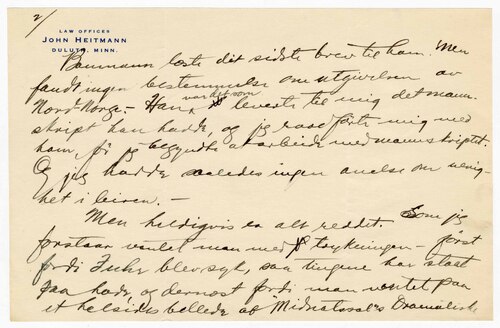 2/
LAW OFFICES
JOHN HEITMANN
DULUTH, MINN.
Baumann læste dit sidste brev til ham. Men
fandt ingen bestemmelse om utgivelsen av
Nord-Norge. - Han, var det som leverte til mig det manu-
skript han hadde, og jeg raadførte mig med
ham før jeg begyndte at arbeide med manuskriptet.
Og jeg hadde saaledes ingen anelse om uenig-
het i leiren. -
Men heldigvis er alt reddet. Som jeg
forstaar ventet man med trykningen - først
fordi Fuhr blev syk, saa tingene har staat
paa hode og dernæst fordi man ventet paa
et helsides billede av "Midnatssolens Dramatiske